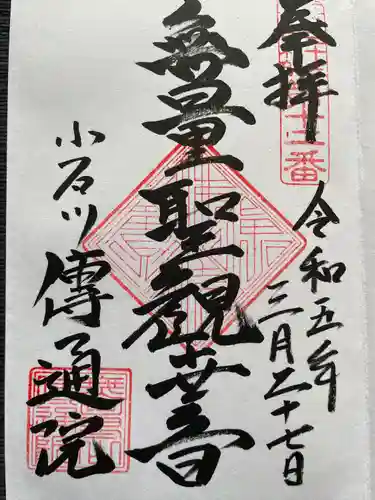 奉拝
令和五年
三月二十七日
無量聖観世音
小石川
傳通院